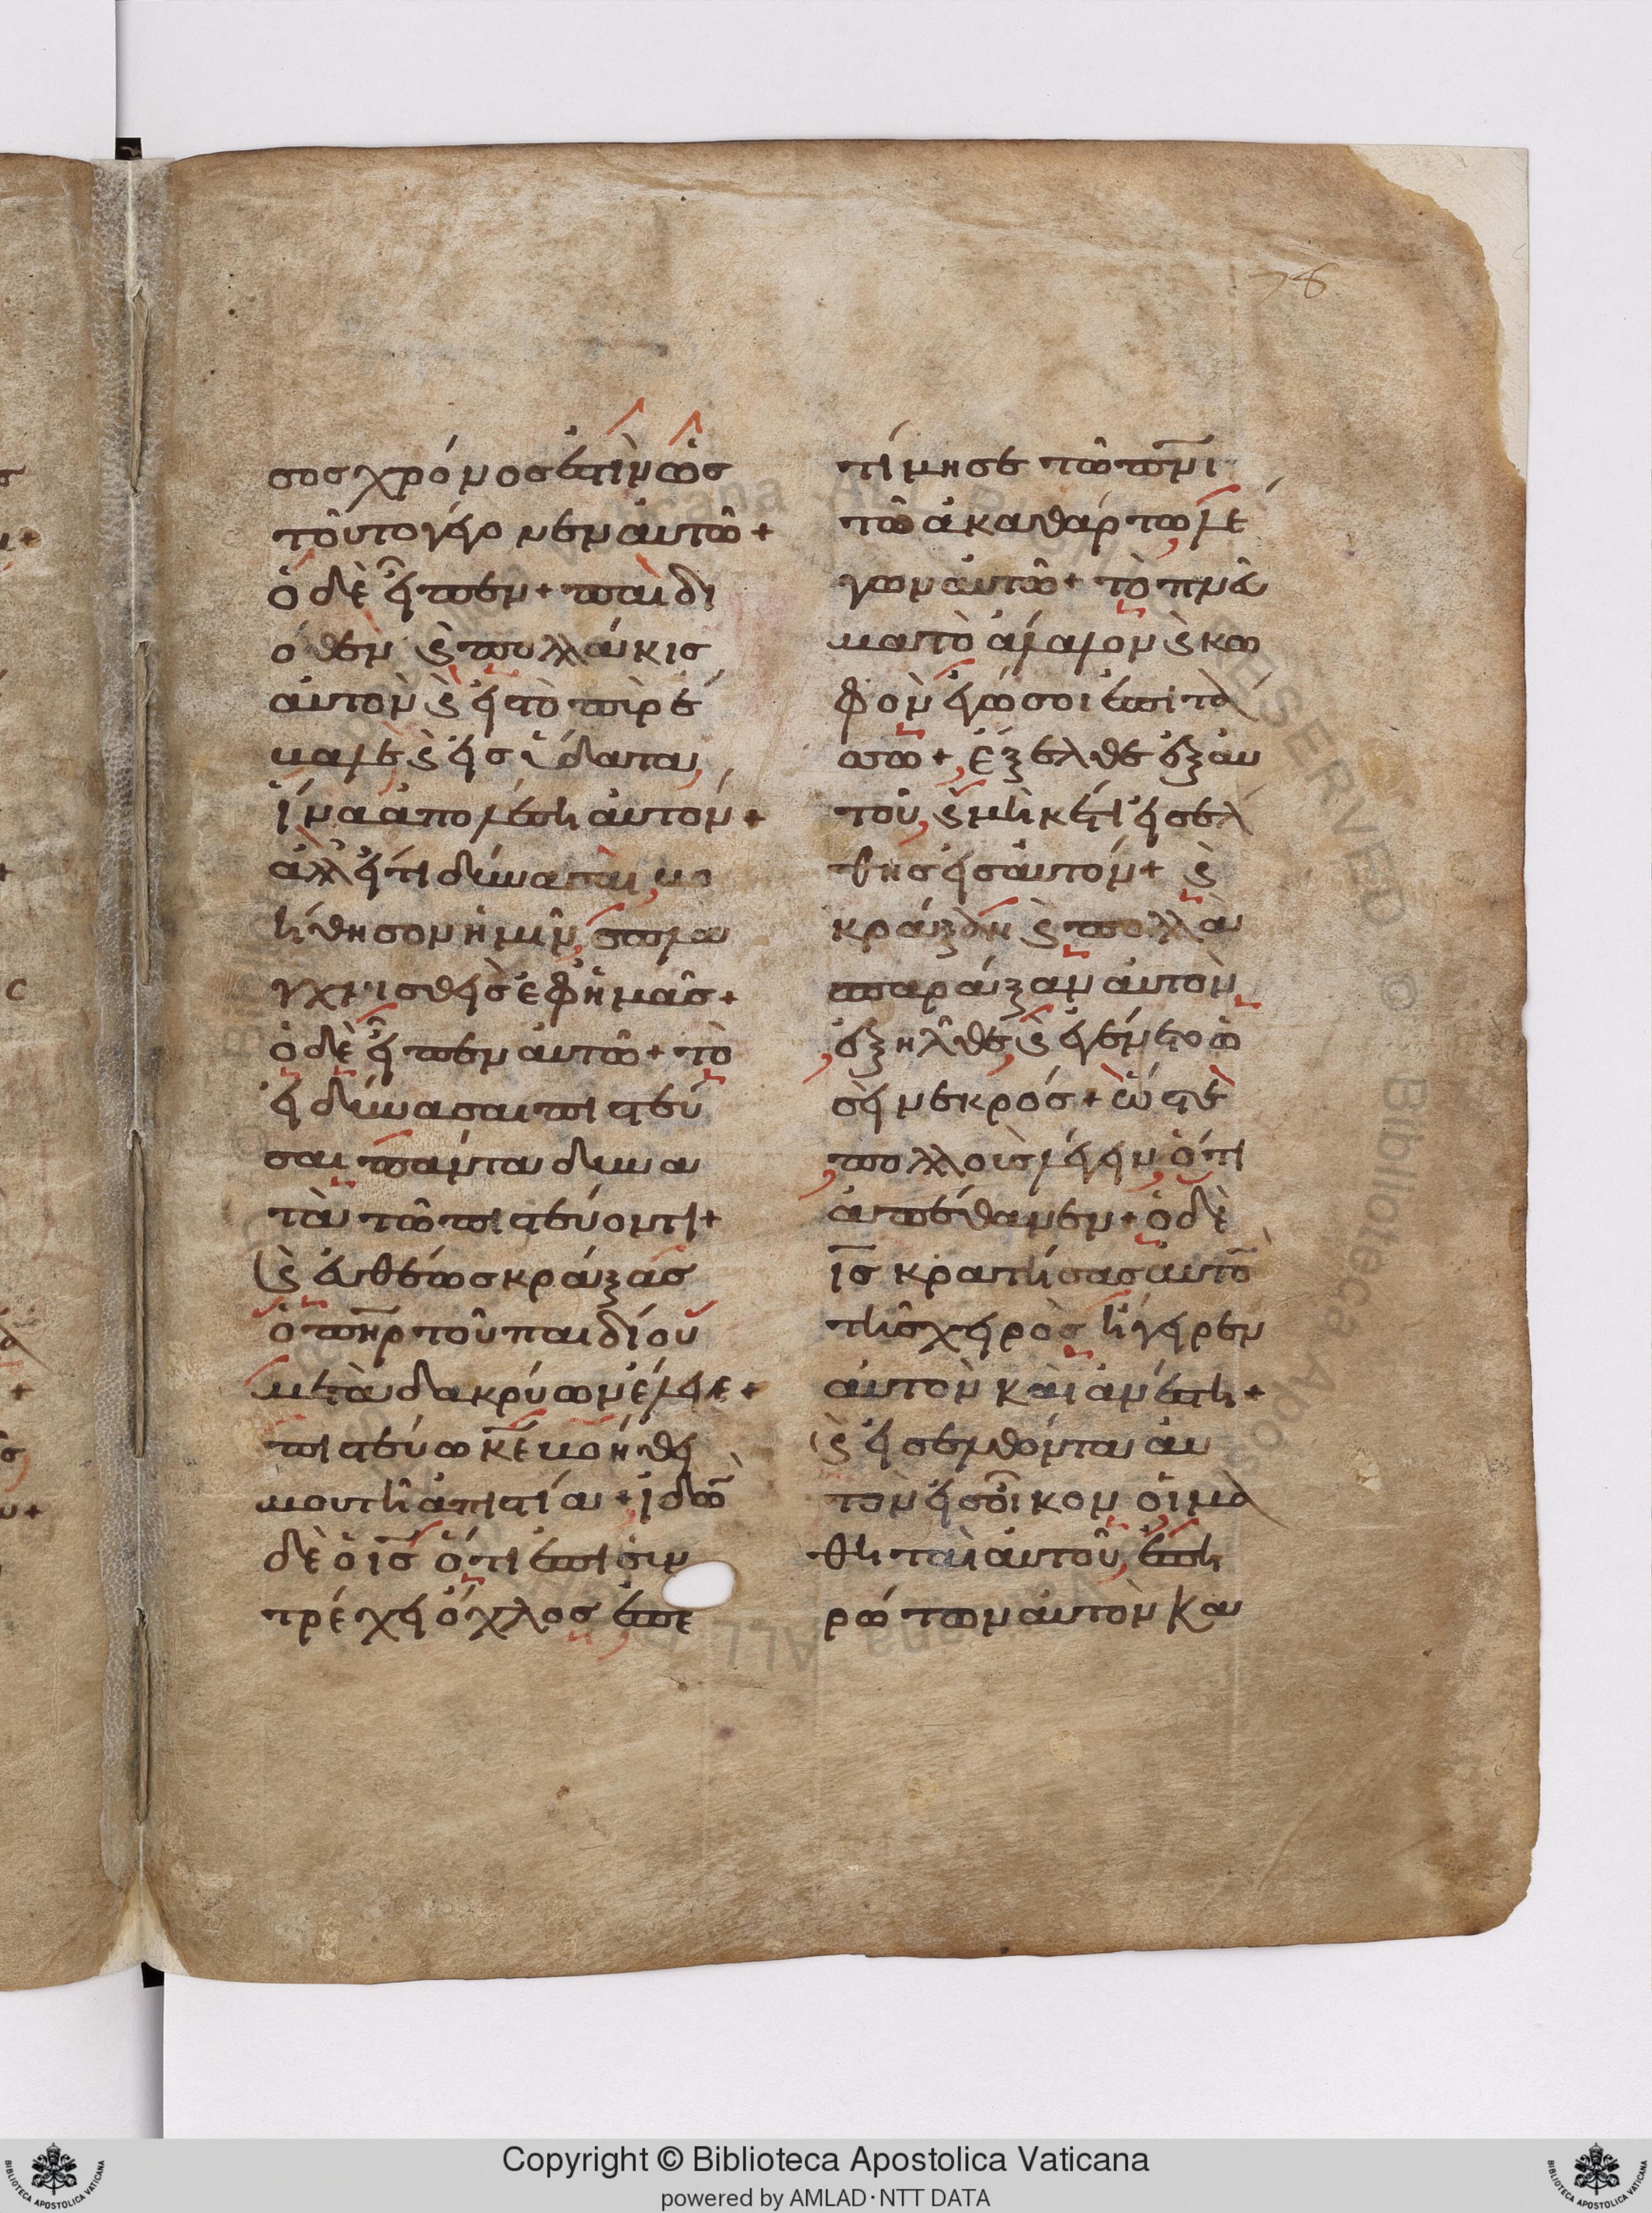 78
σος χρόνος ἐστὶν ὡς
τοῦτο γέγονεν αὐτῶ +
ὁ δὲ εἶπεν + παιδι
όθεν ϗ πολλάκις
αὐτὸν ϗ εἰς τὸ πῦρ έ
βαλε ϗ εἰς ὕδατα,
ἵνα ἀπολέση αὐτόν +
ἀλλ εἴτι δύνασαι, βο
ήθησον ἡμῖν, σπλα
γχνισθεὶς ἐφ ἡμᾶς +
ὁ δὲ εἶπεν αὐτῶ + τὸ
εἰ δύνασαι πιστεύ
σαι πάντα δυνα
τὰ τῶ πιστεύοντι +
ϗ εὐθέως κράξας
ὁ πηρ τοῦ παιδίου
μετὰ δακρύων ἔλεγε +
πιστεύω κε βοήθει
μου τῆ ἀπιστία + ἰδὼν
δὲ ὁ ις ὅτι ἐπισυν
τρέχει ὄχλος ἐπε
τίμησε τῶ πνι
τῶ ἀκαθάρτω λέ
γων αὐτῶ + τὸ πνεῦ
μα τὸ ἄλαλον ϗ κω
φὸν ἐγώ σοι ἐπιτά
σσω +, ἔξελθε ἐξ αυ
τοῦ, ϗ μηκέτι εἰσέλ
θης εἰς αὐτόν + ϗ
κράξαν ϗ πολλὰ
σπαράξαν αὐτὸν
ἐξῆλθε, ϗ ἐγένετο ὡ
σεὶ νεκρός + ὥστε
πολλοὺς λέγειν, ὅτι
ἀπέθανεν + ὁ δὲ
ις κρατήσας αὐτὸν
τῆς χειρὸς ἤγειρεν
αὐτὸν καὶ ἀνέστη +
ϗ εἰσελθόντα αὐ
τὸν εἰς οἶκον οἱ μα
θηταὶ αὐτοῦ, ἐπη
ρώτων αὐτὸν κα
Copyright © Biblioteca Apostolica Vaticana
powered by AMLAD·NTT DATA